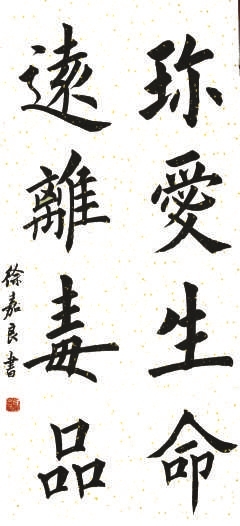 珎愛生命
遠離毒品
徐嘉良書